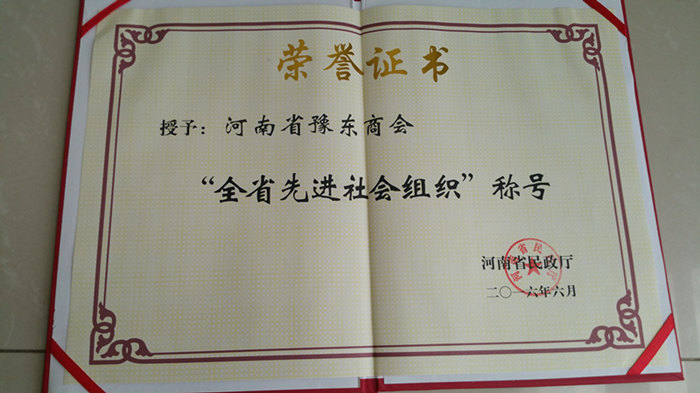 荣誉证书
授予：河南省豫东商会
“全省先进社会组织”称号
河南省民政厅
二〇一六年六月
河南省民政厅